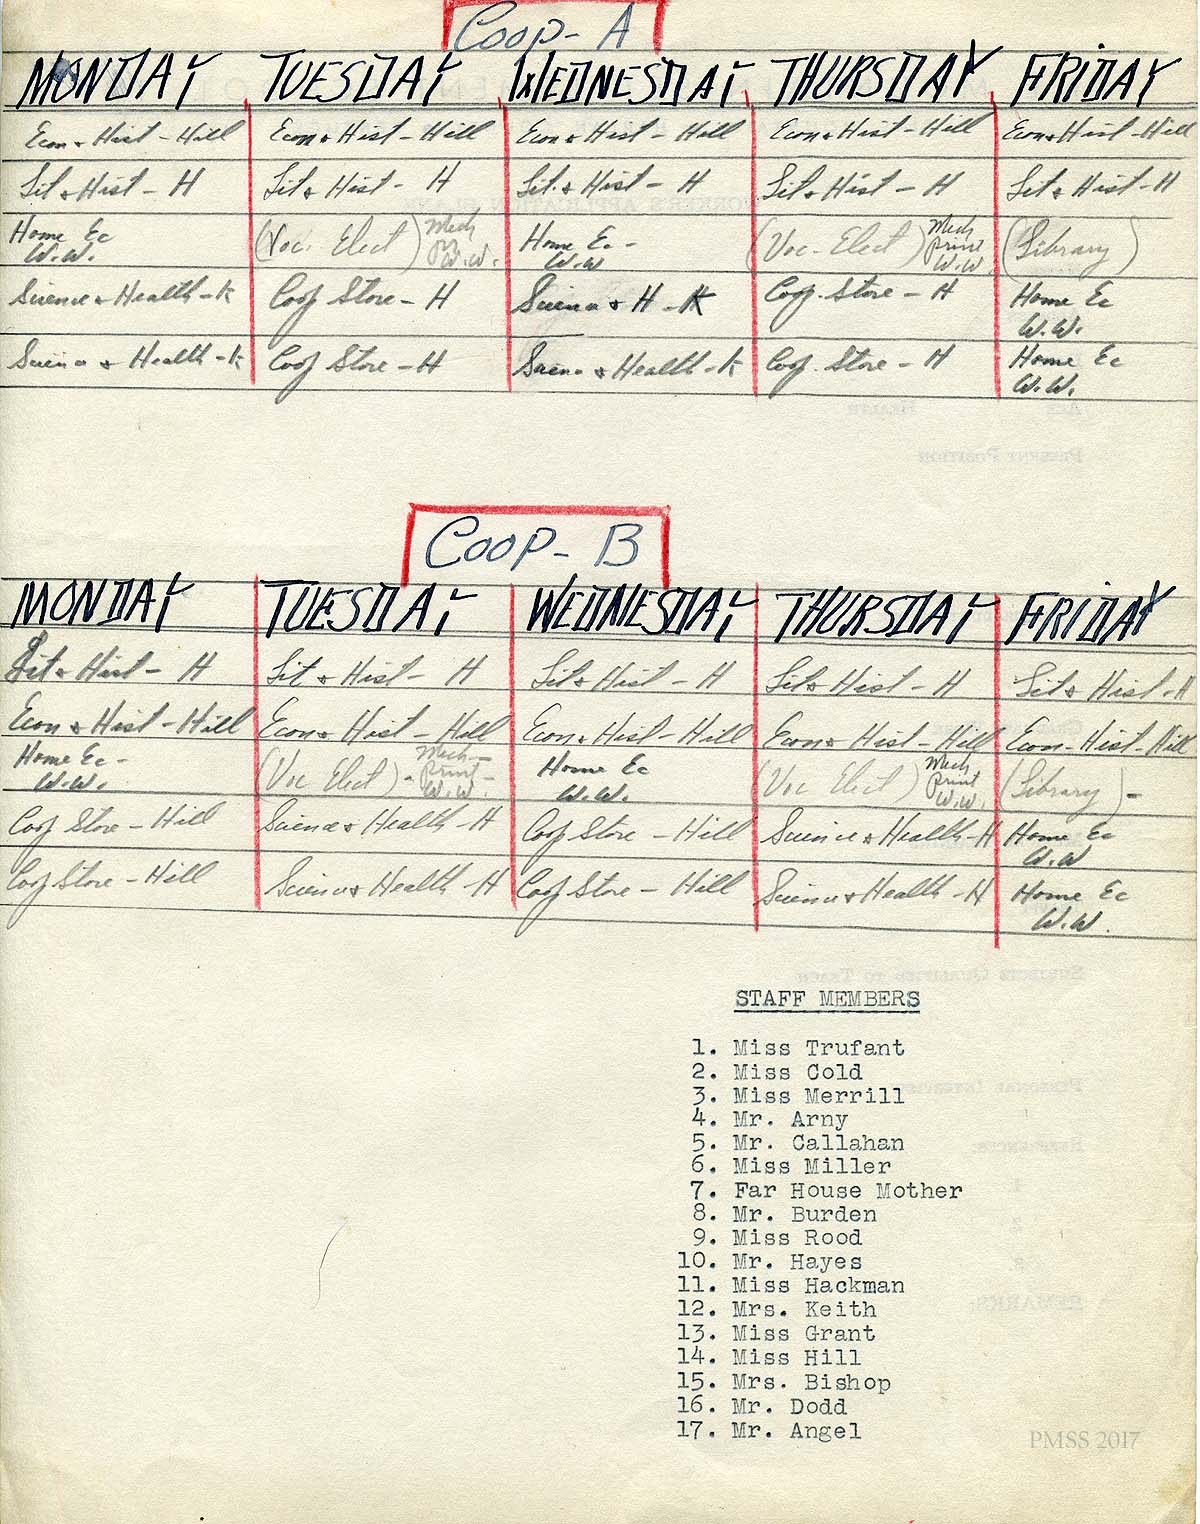 Coop-A
MONDAY TUESDAY WEDNESDAY THURSDAY FRIDAY
Econ & Hist - Hill Econ & Hist - Hill Econ & Hist - Hill Econ & Hist - Hill Econ & Hist - Hill
Lit & Hist - H Lit & Hist - H Lit & Hist - H Lit & Hist - H Lit & Hist - H
Home Ec (Voc. Elect) Mech Home Ec - (Voc. Elect) Mech (Library)
W.W. W.W. W.W Print W.W.
Science & Health - K Coop Store - H Science & H - K Coop. Store - H Home Ec
W.W.
Science & Health - K Coop Store - H Science & Health - K Coop. Store - H Home Ec
W.W.
COOP - B
MONDAY TUESDAY WEDNESDAY THURSDAY FRIDAY
Lit & Hist - H Lit & Hist - H Lit & Hist - H Lit & Hist - H Lit & Hist - H
Econ & Hist - Hill Econ & Hist - Hill Econ & Hist - Hill Econ & Hist - Hill Econ - Hist - Hill
Home Ec - (Voc Elect) - Mech - Print - Home Ec (Voc Elect) Mech Print (Library) -
W.W. W.W. W.W. W.W.
Coop Store - Hill Science & Health - H Coop Store - Hill Science & Health - H Home Ec
W.W
Coop Store - Hill Science & Health - H Coop Store - Hill Science & Health - H Home Ec
W.W.
STAFF MEMBERS
1. Miss Trufant
2. Miss Cold
3. Miss Merrill
4. Mr. Arny
5. Mr. Callahan
6. Miss Miller
7. Far House Mother
8. Mr. Burden
9. Miss Rood
10. Mr. Hayes
11. Miss Hackman
12. Mrs. Keith
13. Miss Grant
14. Miss Hill
15. Mrs. Bishop
16. Mr. Dodd
17. Mr. Angel
PMSS 2017